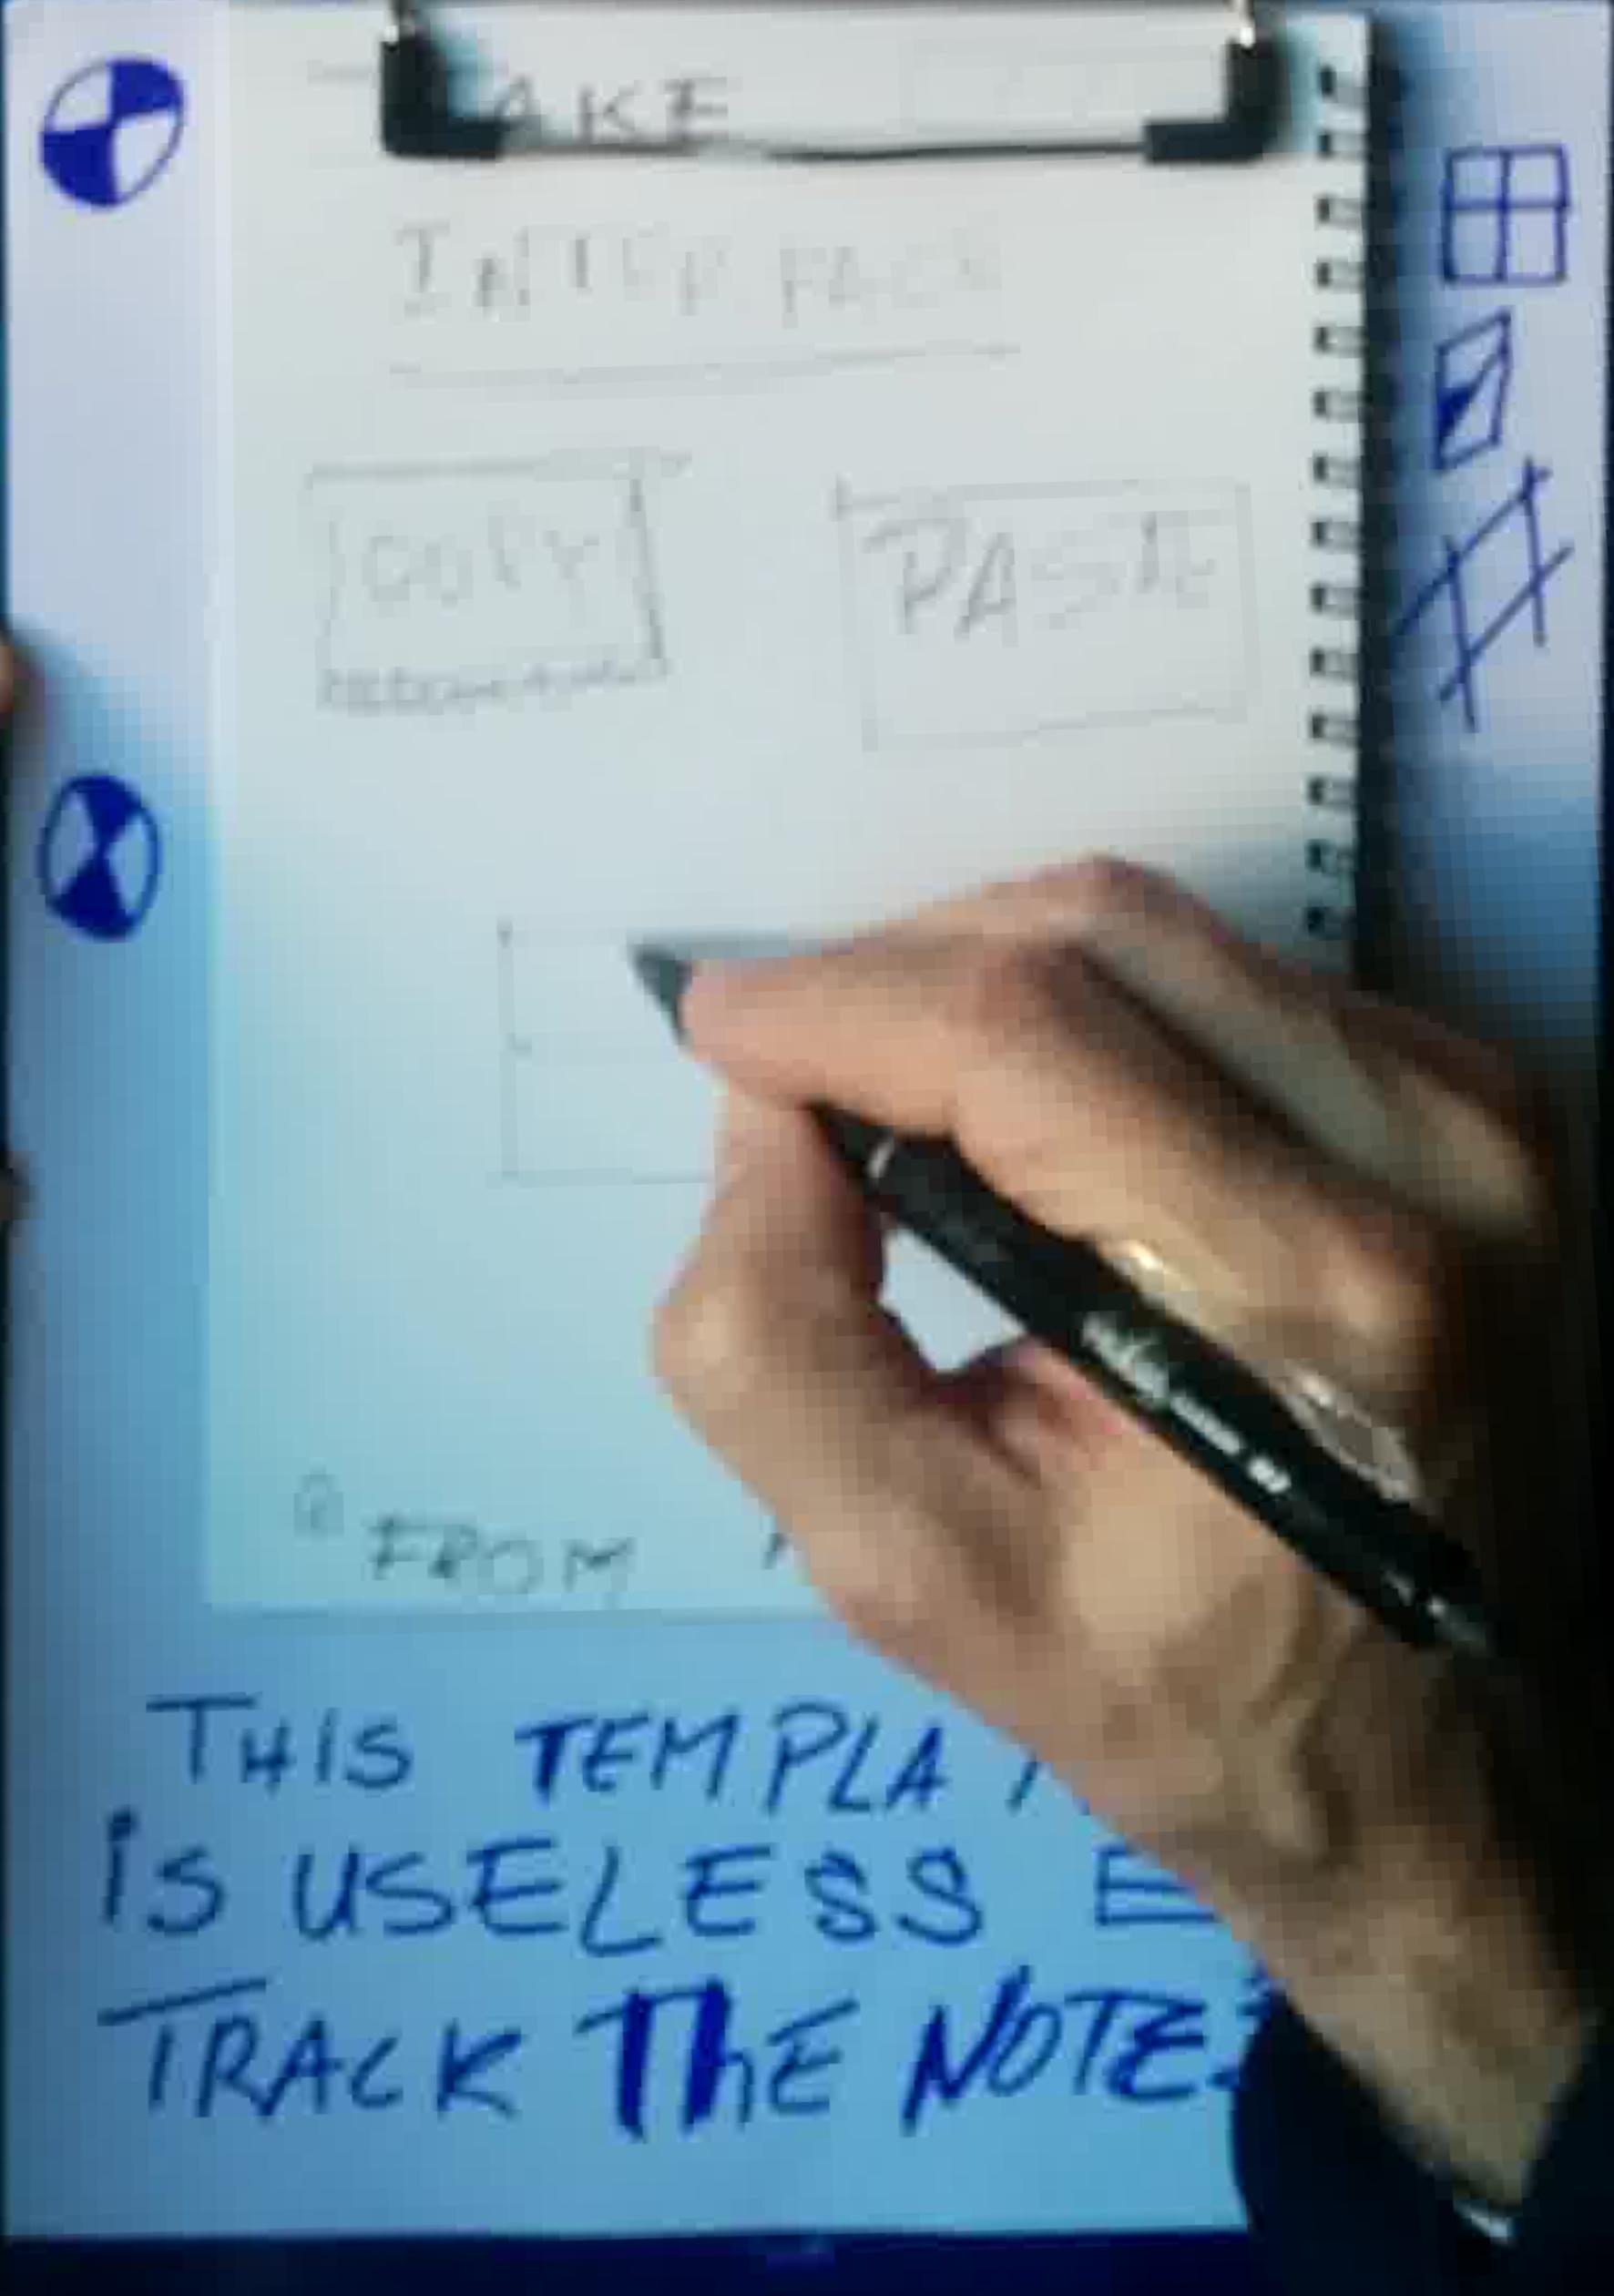 AKE
INTERFACE
COPY
PASTE
FROM
THIS TEMPLA
IS USELESS
TRACK THE NOTE